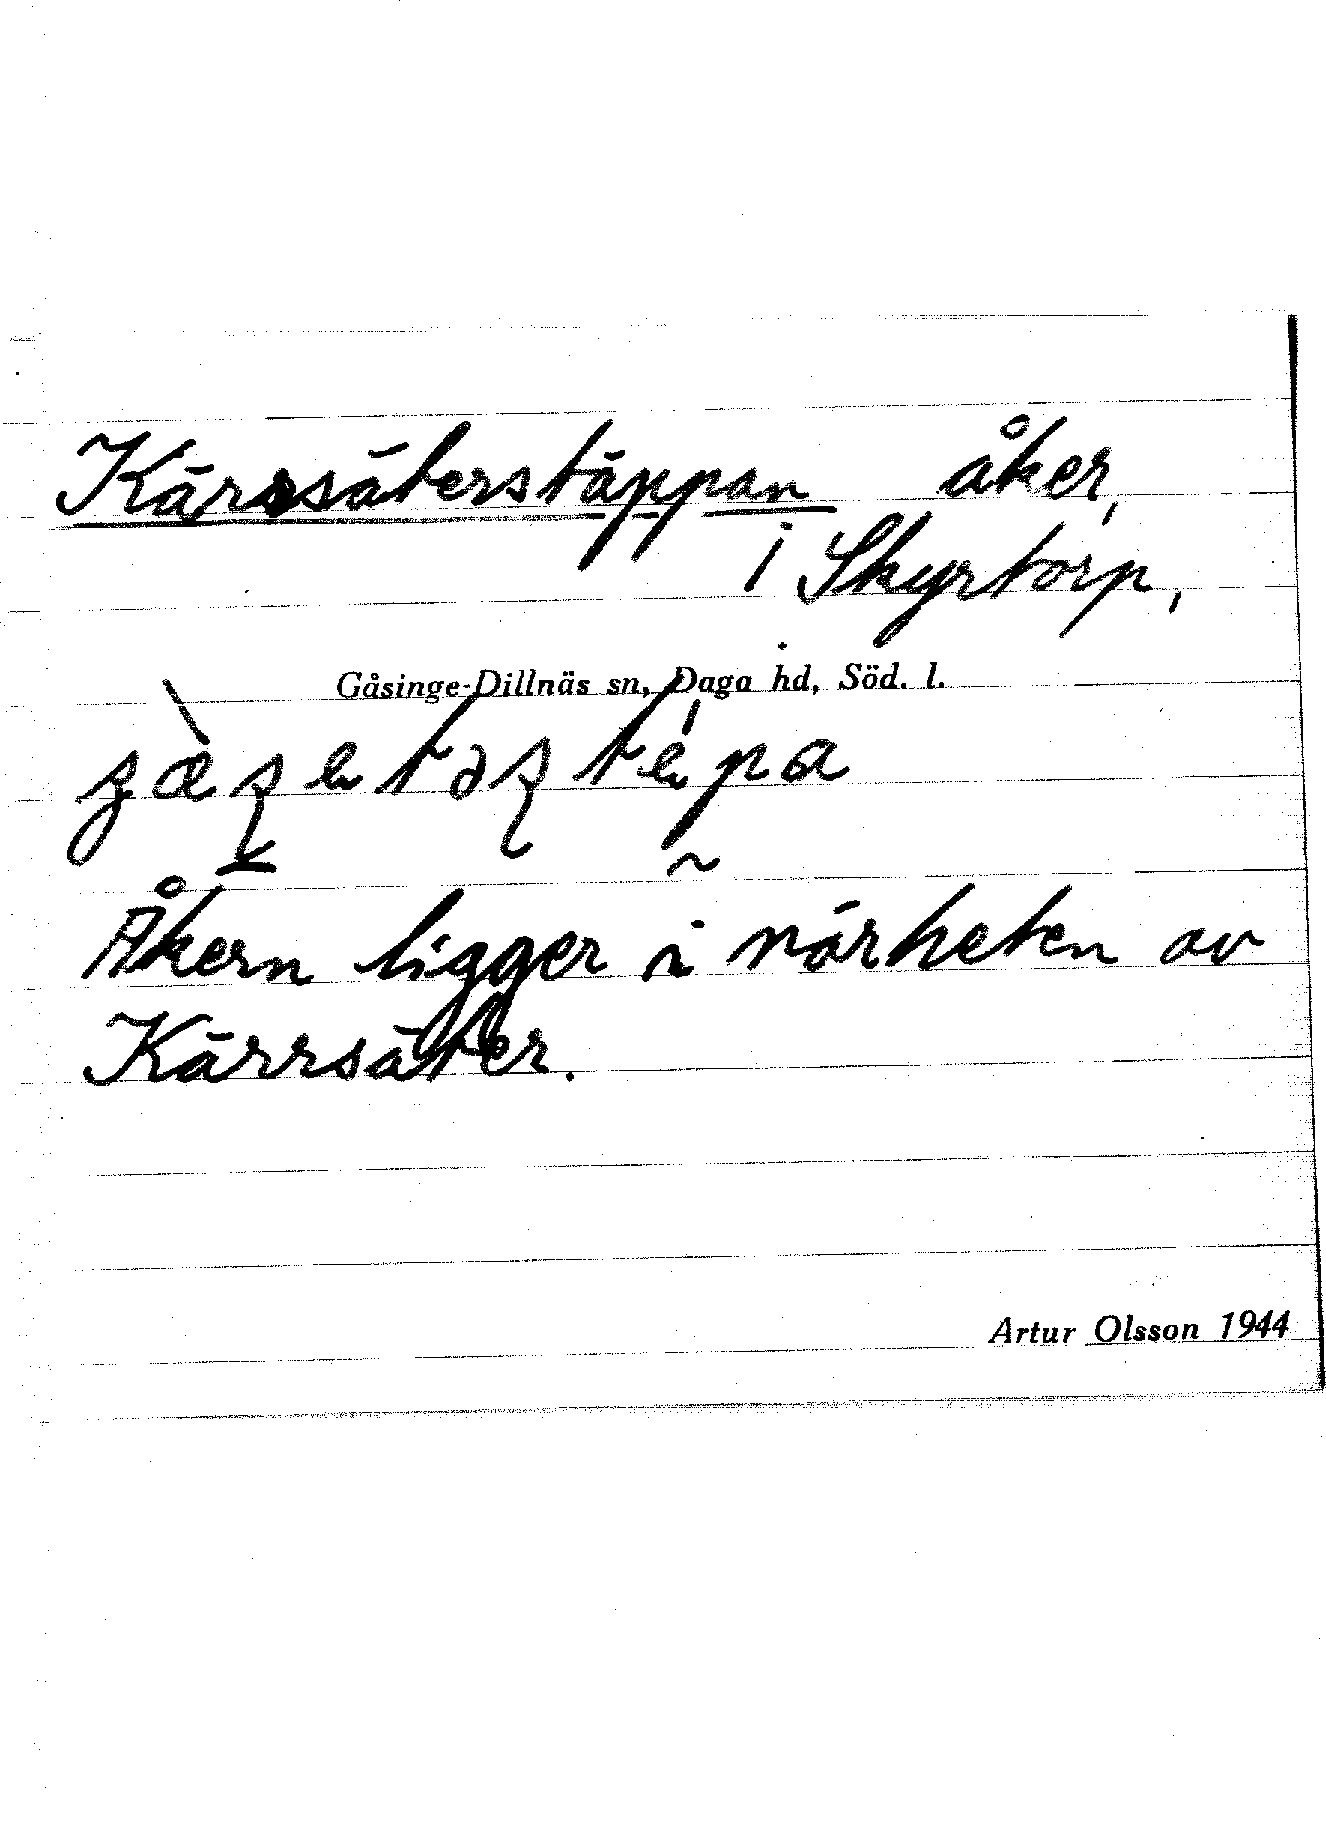 Kärrsäterstäppan åker,
i Skyrtorp,
Gåsinge-Dillnäs sn, Daga hd, Söd. l.
Åkern ligger i närheten av
Kärrsäter.
Artur Olsson 1944